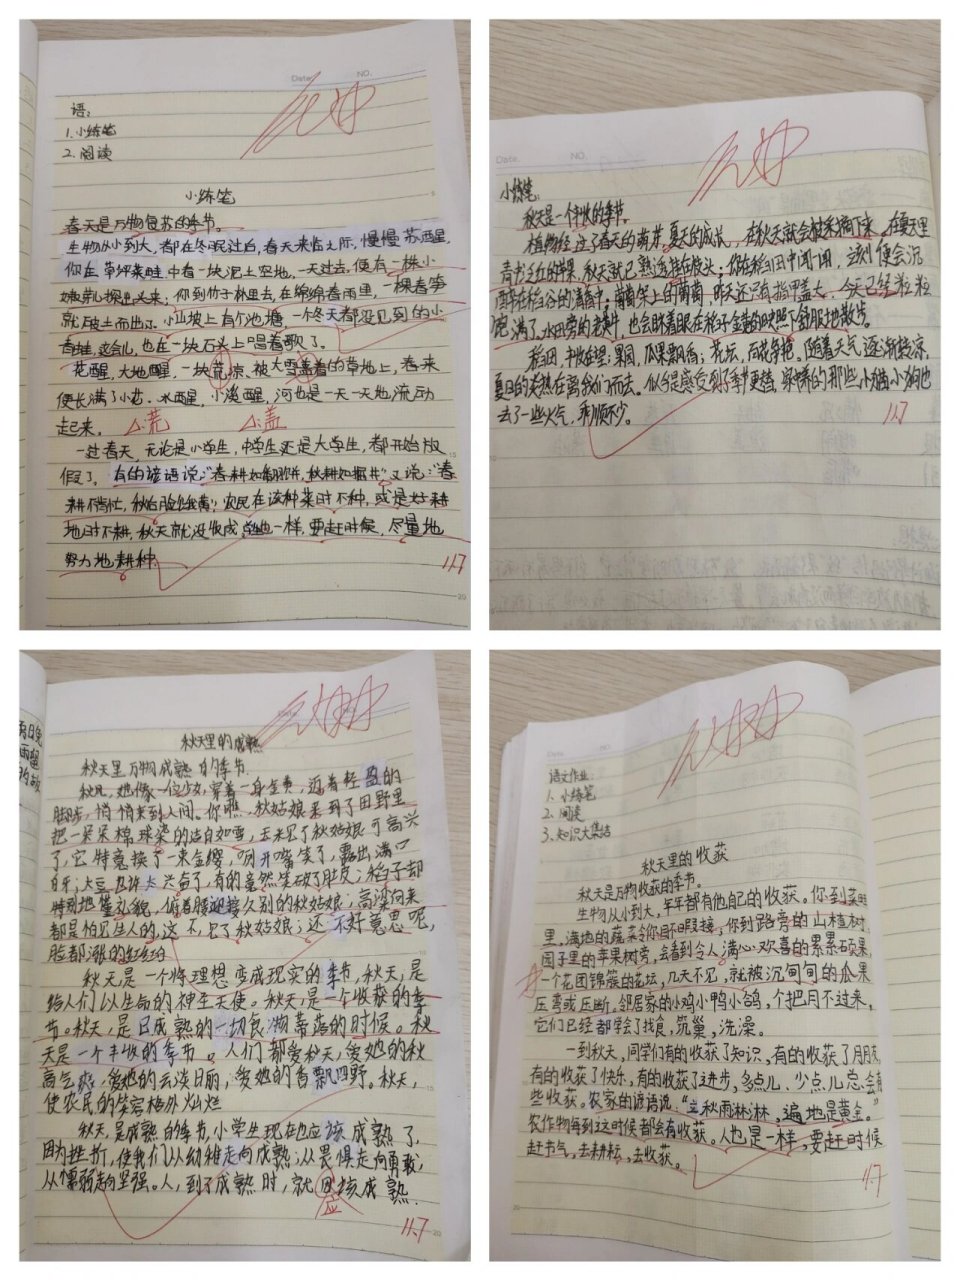 Date. NO.
语:
1.小练笔
2.阅读
小练笔
春天是万物复苏的季节。
生物从小到大,都在冬眠过白,春天来临之际,慢慢苏醒,
你在草坪菜畦中看一块泥土空地,一天过去,便有一株小
嫩芽儿探出头来;你到竹子林里去,在绵绵春雨里,一棵春笋
就破土而出了。小山坡上有个池塘,一个冬天都没见到的小
青蛙,这会儿,也在一块石头上唱着歌了。
花醒,大地醒,一块荒凉、被大雪盖着的草地上,春来
便长满了小花。水醒,小溪醒,河也是一天一天地流动
起来。 荒 盖
一过春天,无论是小学生,中学生还是大学生,都开始放
假了。有的谚语说:“春耕如翻饼,秋耕如掘井”又说:“春
耕不肯忙,秋后脸饿黄”;农民在该种菜时不种,或是好耕
地时不耕,秋天就没收成,学也一样,要赶时候,尽量地
努力地耕种。
11.7
Date. NO.
小练笔:
秋天是一个丰收的季节。
植物经过了春天的萌芽,夏天的成长,在秋天就会被采摘下来。在夏天里
青书泛丘的苹果,秋天就已熟透挂在枝头;你在稻田中闻一闻,这时便会沉
醉在稻谷的清香中;葡萄架上的葡萄,昨天还只有指甲盖大,今天已经粒粒
饱满了。水田旁的老黄牛,也会眯着眼在稻子金黄的映照下舒服地散步。
稻田,丰收在望;果园,瓜果飘香;花坛,百花争艳。随着天气逐渐转凉,
夏日的炎热在离我们而去。似乎是感受到了季节更替,家养的那些小猫小狗也
去了一些火气,乖顺不少。
11.7
Date. NO.
秋天里的成熟
秋天里万物成熟的季节.
秋风,她像一位少女,穿着一身金黄,迈着轻盈的
脚步,悄悄来到人间。你瞧,秋姑娘来到了田野里
把一朵朵棉球染的洁白如雪,玉米见了秋姑娘可高兴
了,它特意换了一束金缨,咧开嘴笑了,露出满口
白牙;大豆也许太兴奋了,有的竟然笑破了肚皮;稻子却
特别地懂礼貌,俯着腰迎接久别的秋姑娘;高粱向来
都是怕见生人的,这不,见了秋姑娘,还不好意思呢,
脸都涨的红红的
秋天,是一个将理想变成现实的季节,秋天,是
给人们以生命的神圣天使。秋天,是一个收获的季
节。秋天,是已成熟的一切食物蒂落的时候。秋
天是一个丰收的季节。人们都爱秋天,爱她的秋
高气爽,爱她的云淡日丽,爱她的香飘四野。秋天,
使农民的笑容格外灿烂
秋天,是成熟的季节,小学生现在也应该成熟了,
因为挫折,使我们从幼稚走向成熟;从畏惧走向勇敢;
从懦弱走向坚强。人,到了成熟时,就应该成熟.
应
11.7
Date. NO.
语文作业:
1、小练笔
2、阅读
3、知识大集结
秋天里的收获
秋天是万物收获的季节。
生物从小到大,年年都有他自己的收获。你到菜田
里,满地的蔬菜令你目不暇接;你到路旁的山楂树、
园子里的苹果树旁,会看到令人满心欢喜的累累硕果,
一个花团锦簇的花坛,几天不见,就被沉甸甸的瓜果
压弯或压断。邻居家的小鸡小鸭小鸽,个把月不过来,
它们已经都学会了找食,筑巢,洗澡。
一到秋天,同学们有的收获了知识,有的收获了朋友,
有的收获了快乐,有的收获了进步,多点儿、少点儿总会有
些收获。农家的谚语说:“立秋雨淋淋,遍地是黄金。”
农作物每到这时候都会有收获。人也是一样,要赶时候
赶节气,去耕耘,去收获。
11.7